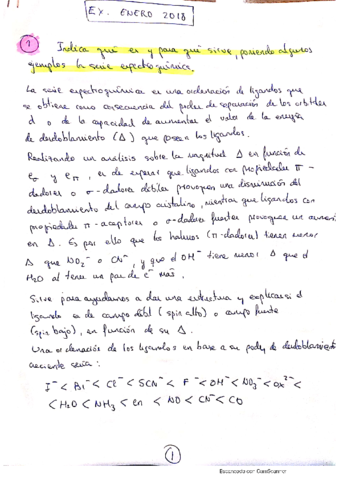 EX. ENERO 2018
1 Indica qué es y para qué sirve, poniendo algunos
ejemplos la serie espectroquímica.
La serie espectroquímica es una ordenación de ligandos que
se obtiene como consecuencia del poder de separación de los orbitales
d o de la capacidad de aumentar el valor de la energía
de desdoblamiento (Δ) que posean los ligandos.
Realizando un análisis sobre la magnitud Δ en función de
eσ y eπ, es de esperar que ligandos con propiedades π-
dadores o σ-dadores débiles provoquen una disminución del
desdoblamiento del campo cristalino, mientras que ligandos con
propiedades π-aceptores o σ-dadores fuertes provoquen un aumento
en Δ. Es por ello que los haluros (π-dadores) tienen menor
Δ que NO₂⁻ o CN⁻, y que el OH⁻ tiene menor Δ que el
H₂O al tener un par de e⁻ más.
Sirve para ayudarnos a dar una estructura y explicar si el
ligando es de campo débil (spin alto) o campo fuerte
(spin bajo), en función de su Δ.
Una ordenación de los ligandos en base a su poder de desdoblamiento
creciente sería:
I⁻ < Br⁻ < Cl⁻ < SCN⁻ < F⁻ < OH⁻ < NO₃⁻ < ox²⁻ <
< H₂O < NH₃ < en < NO < CN⁻ < CO
1
Escaneado con CamScanner